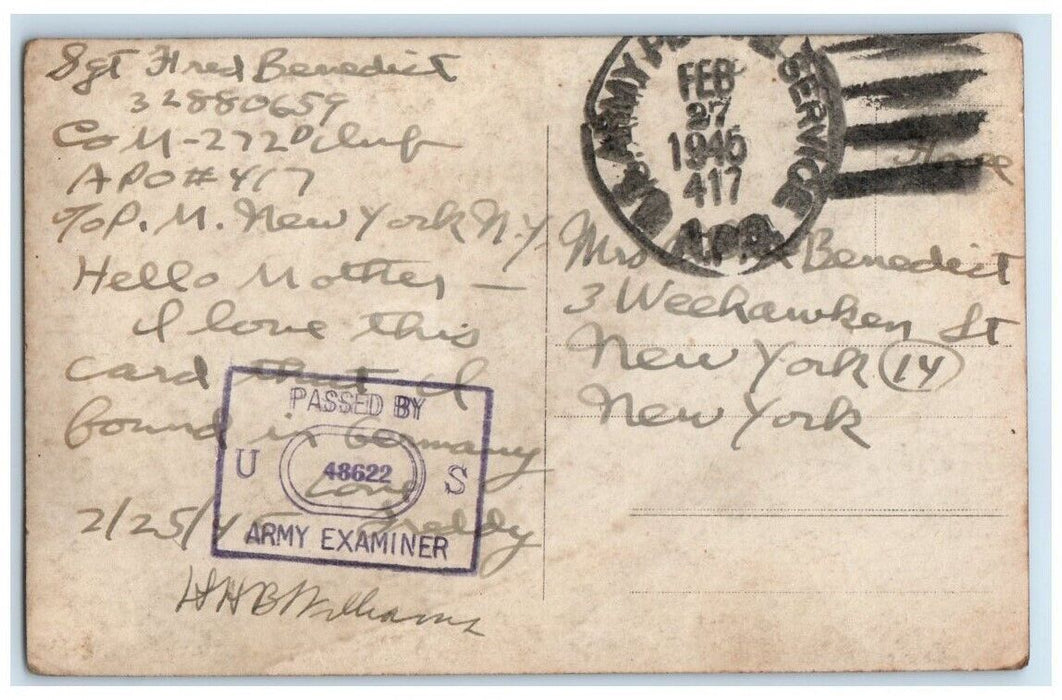 Sgt Fred Benedict
32880659
Co M-272D Inf
APO # 417
c/o P. M. New York N.Y.
Hello Mother —
I love this
card that I
found in Germany
Love
2/25/45 Freddy
PASSED BY
U 48622 S
ARMY EXAMINER
HHB Williams
U.S. ARMY POSTAL SERVICE
FEB
27
1945
417
A.P.O.
Free
Mrs Benedict
3 Weehawken St
New York (14)
New York